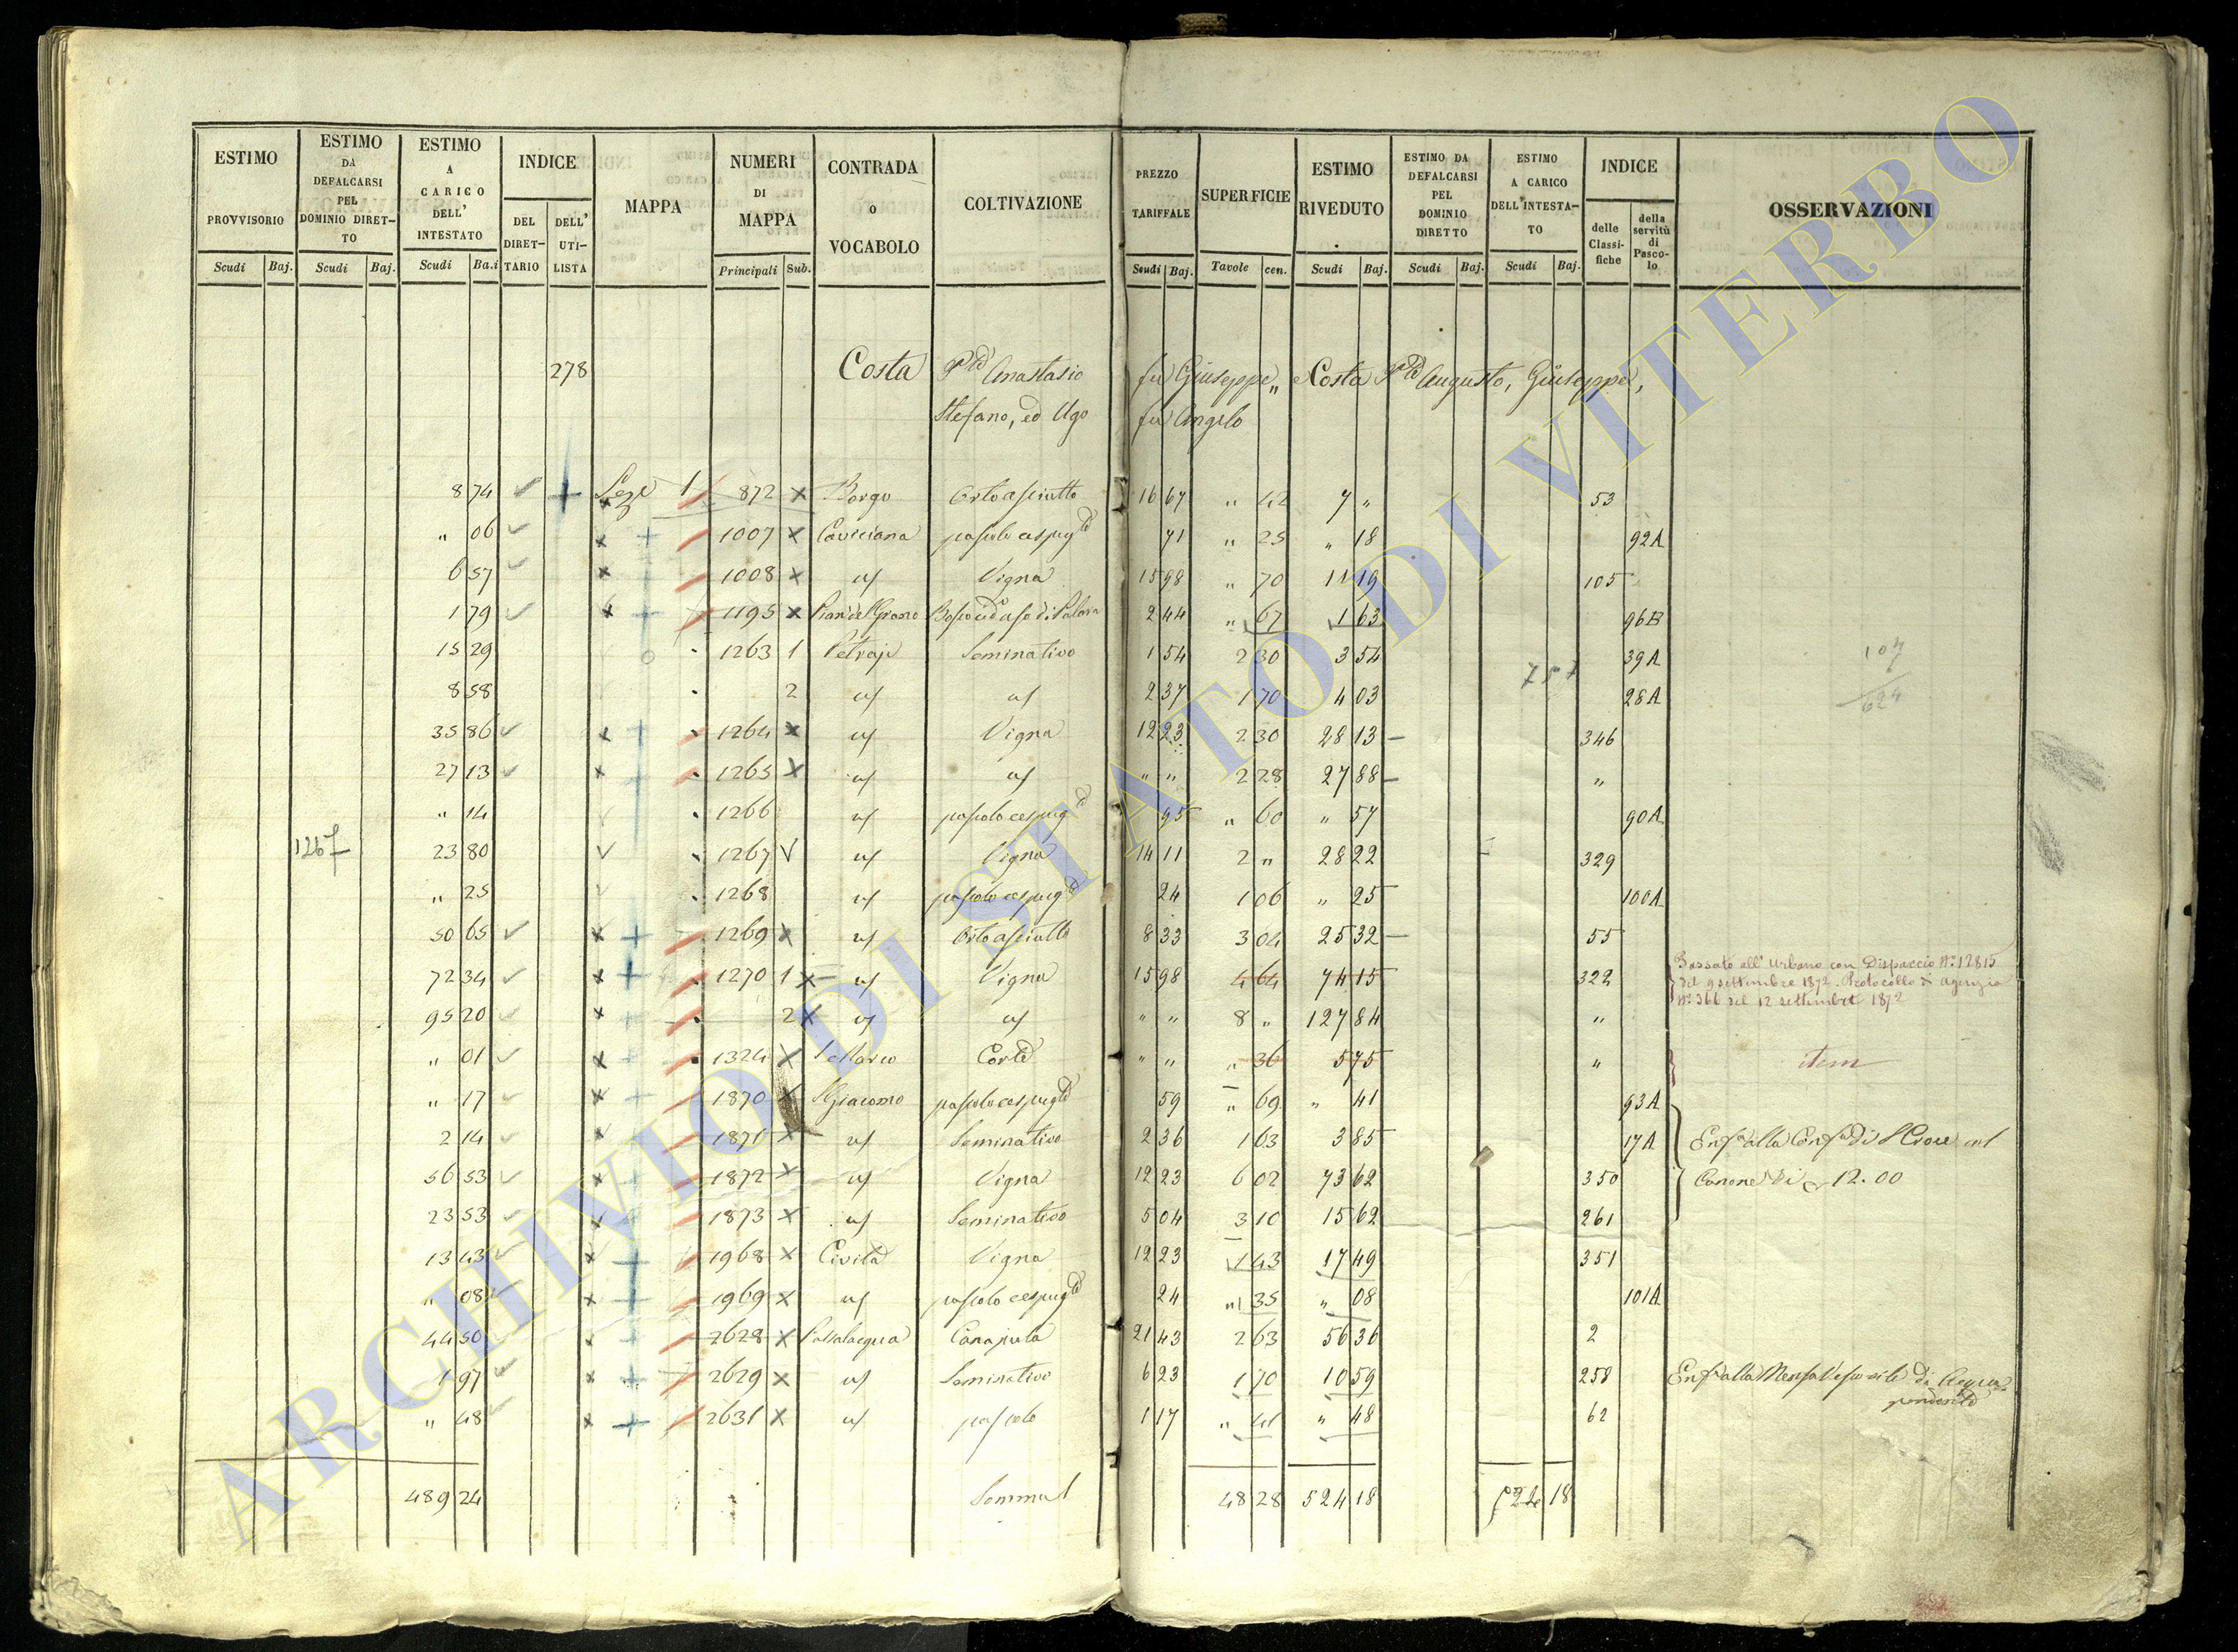 ESTIMO PROVVISORIO Scudi Baj. ESTIMO DA DEFALCARSI PEL DOMINIO DIRETTO Scudi Baj. ESTIMO A CARICO DELL' INTESTATO Scudi Ba.i INDICE DEL DIRETTARIO DELL' UTILISTA MAPPA NUMERI DI MAPPA Principali Sub. CONTRADA O VOCABOLO COLTIVAZIONE PREZZO TARIFFALE Scudi Baj. SUPERFICIE Tavole cen. ESTIMO RIVEDUTO Scudi Baj. ESTIMO DA DEFALCARSI PEL DOMINIO DIRETTO Scudi Baj. ESTIMO A CARICO DELL'INTESTATO Scudi Baj. INDICE delle Classifiche della servitù di Pascolo OSSERVAZIONI
278 Costa Anastasio fu Giuseppe „ e Costa Augusto, Giuseppe,
Stefano, ed Ugo fu Angelo
8 74 Seze 1 872 x Borgo Orto asciutto 16 67 „ 42 7 „ 53
„ 06 x 1007 x Cavicciana pascolo cespug 71 „ 25 „ 18 92A
6 57 x 1008 x id Vigna 15 98 „ 70 11 19 105
1 79 x 1195 x 2 44 „ 67 1 63 96B
15 29 1263 1 Petraje Seminativo 1 54 2 30 3 54 39A
8 58 2 id id 2 37 1 70 4 03 28A
35 86 x 1264 x id Vigna 12 23 2 30 28 13 346
27 13 x 1265 x id id „ „ 2 28 27 88 „
„ 14 1266 id pascolo cespug 95 „ 60 „ 57 90A
1267 23 80 1267 V id Vigna 14 11 2 „ 28 22 329
„ 25 1268 id pascolo cespug 24 1 06 „ 25 100A
50 65 x 1269 x id Orto asciutto 8 33 3 04 25 32 55
72 34 x 1270 1 x id Vigna 15 98 4 64 74 15 322 Passato all' Urbano con Dispaccio N.° 12815
del 9 settembre 1872. Protocollo di Agenzia
N.° 366 del 12 settembre 1872
95 20 x 2 x id id „ „ 8 „ 127 84 „
„ 01 x 1324 x S. Marco Corte „ „ „ 36 5 75 „ item
„ 17 x 1870 x S. Giacomo pascolo cespug 59 „ 69 „ 41 93A
2 14 x 1871 x id Seminativo 2 36 1 63 3 85 17A Enf. alla Conf. di S. Croce col
56 53 1872 x id Vigna 12 23 6 02 73 62 350 Canone di 12.00
23 53 1873 x id Seminativo 5 04 3 10 15 62 261
13 43 x 1968 x Civita Vigna 12 23 1 43 17 49 351
„ 08 x 1969 x id pascolo cespug 24 „ 35 „ 08 101A
44 50 x 2628 x Passalacqua Canapula 21 43 2 63 56 36 2
1 97 x 2629 x id Seminativo 6 23 1 70 10 59 258 Enf. alla Mensa Vescovile di Acqua-
pendente
„ 48 x 2631 x id pascolo 1 17 „ 41 „ 48 62
489 24 Somma 48 28 524 18 524 18
107
624
ARCHIVIO DI STATO DI VITERBO